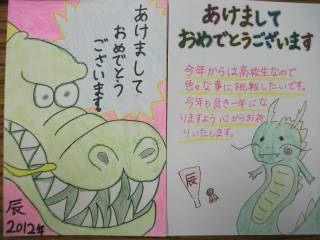 あけまして
おめでとう
ございます。
辰
2012年
あけまして
おめでとうございます
今年からは高校生なので
色々な事に挑戦したいです。
今年も良き一年にな
りますよう心からお祈
りいたします。
辰